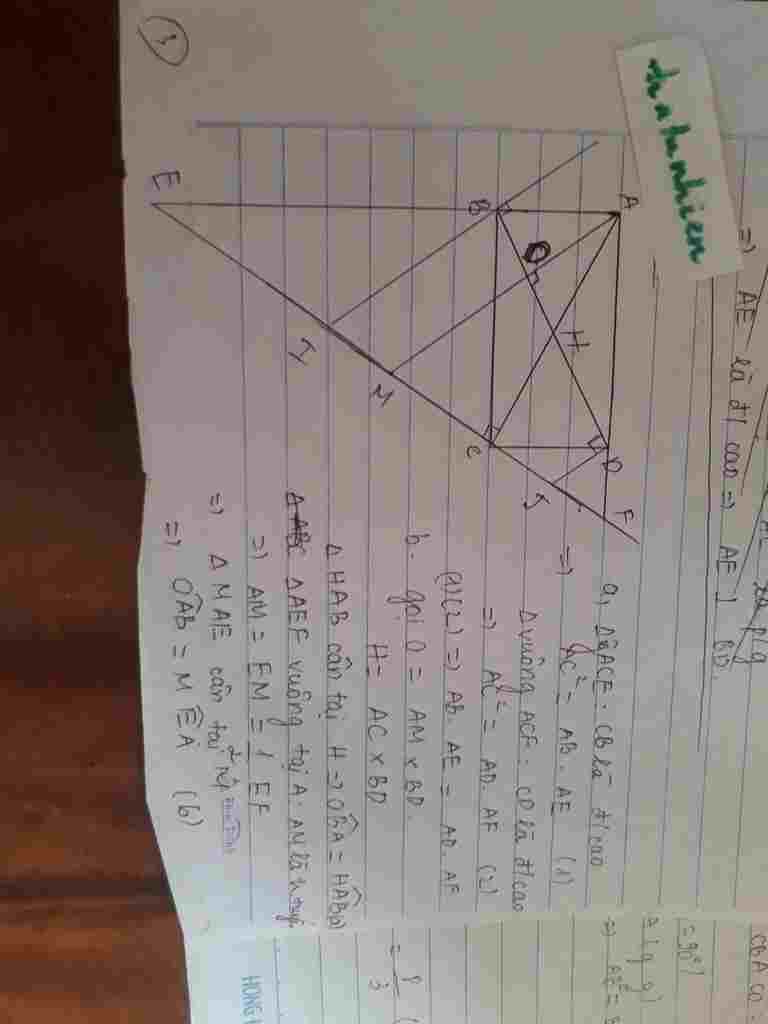 thatunhien
=) AE là đ/cao =) AE ⊥ BD
3
A
B
O
H
D
E
I
M
C
J
F
a, Δ ACE. CB là đ/cao
=) AC² = AB. AE (1)
Δ vuông ACF. CD là đ/cao
=) AC² = AD. AF (2)
(1)(2) =) AB. AE = AD. AF
b. gọi O = AM x BD.
H = AC x BD
Δ HAB cân tại H =) OBA = HAB
Δ AEF vuông tại A. AM là
=) AM = EM = 1/2 EF
=) Δ MAE cân tại
=) OAB = MEA (b)
CBA co
= 90°
=) AE² =
= 8/3
HONG